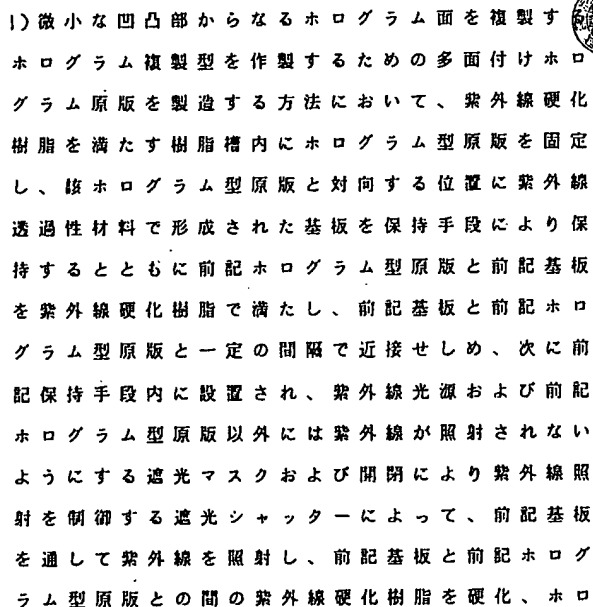 1)微小な凹凸部からなるホログラム面を複製す
ホログラム複製型を作製するための多面付けホロ
グラム原版を製造する方法において、紫外線硬化
樹脂を満たす樹脂槽内にホログラム型原版を固定
し、該ホログラム型原版と対向する位置に紫外線
透過性材料で形成された基板を保持手段により保
持するとともに前記ホログラム型原版と前記基板
を紫外線硬化樹脂で満たし、前記基板と前記ホロ
グラム型原版と一定の間隔で近接せしめ、次に前
記保持手段内に設置され、紫外線光源および前記
ホログラム型原版以外には紫外線が照射されない
ようにする遮光マスクおよび開閉により紫外線照
射を制御する遮光シャッターによって、前記基板
を通して紫外線を照射し、前記基板と前記ホログ
ラム型原版との間の紫外線硬化樹脂を硬化、ホロ